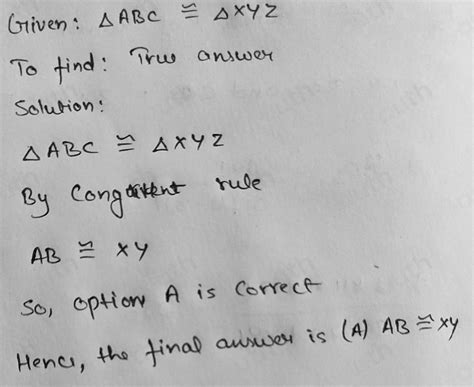 Given: △ABC ≅ △XYZ
To find: True answer
Solution:
△ABC ≅ △XYZ
By Congruent rule
AB ≅ XY
So, option A is correct
Hence, the final answer is (A) AB ≅ XY